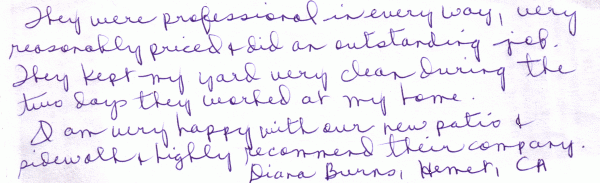 They were professional in every way, very
reasonably priced & did an outstanding job.
They kept my yard very clean during the
two days they worked at my home.
I am very happy with our new patio &
sidewalk & highly recommend their company.
Diana Burns, Hemet, CA